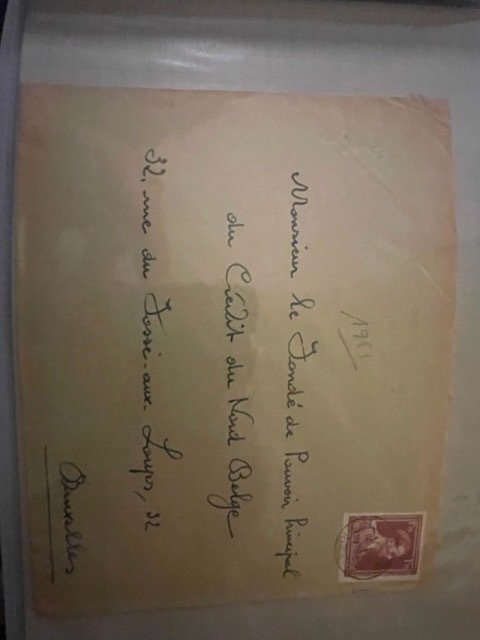 1951
Monsieur le Fondé de Pouvoir Principal
du Crédit du Nord Belge
32, rue du Fossé-aux-Loups, 32
Bruxelles